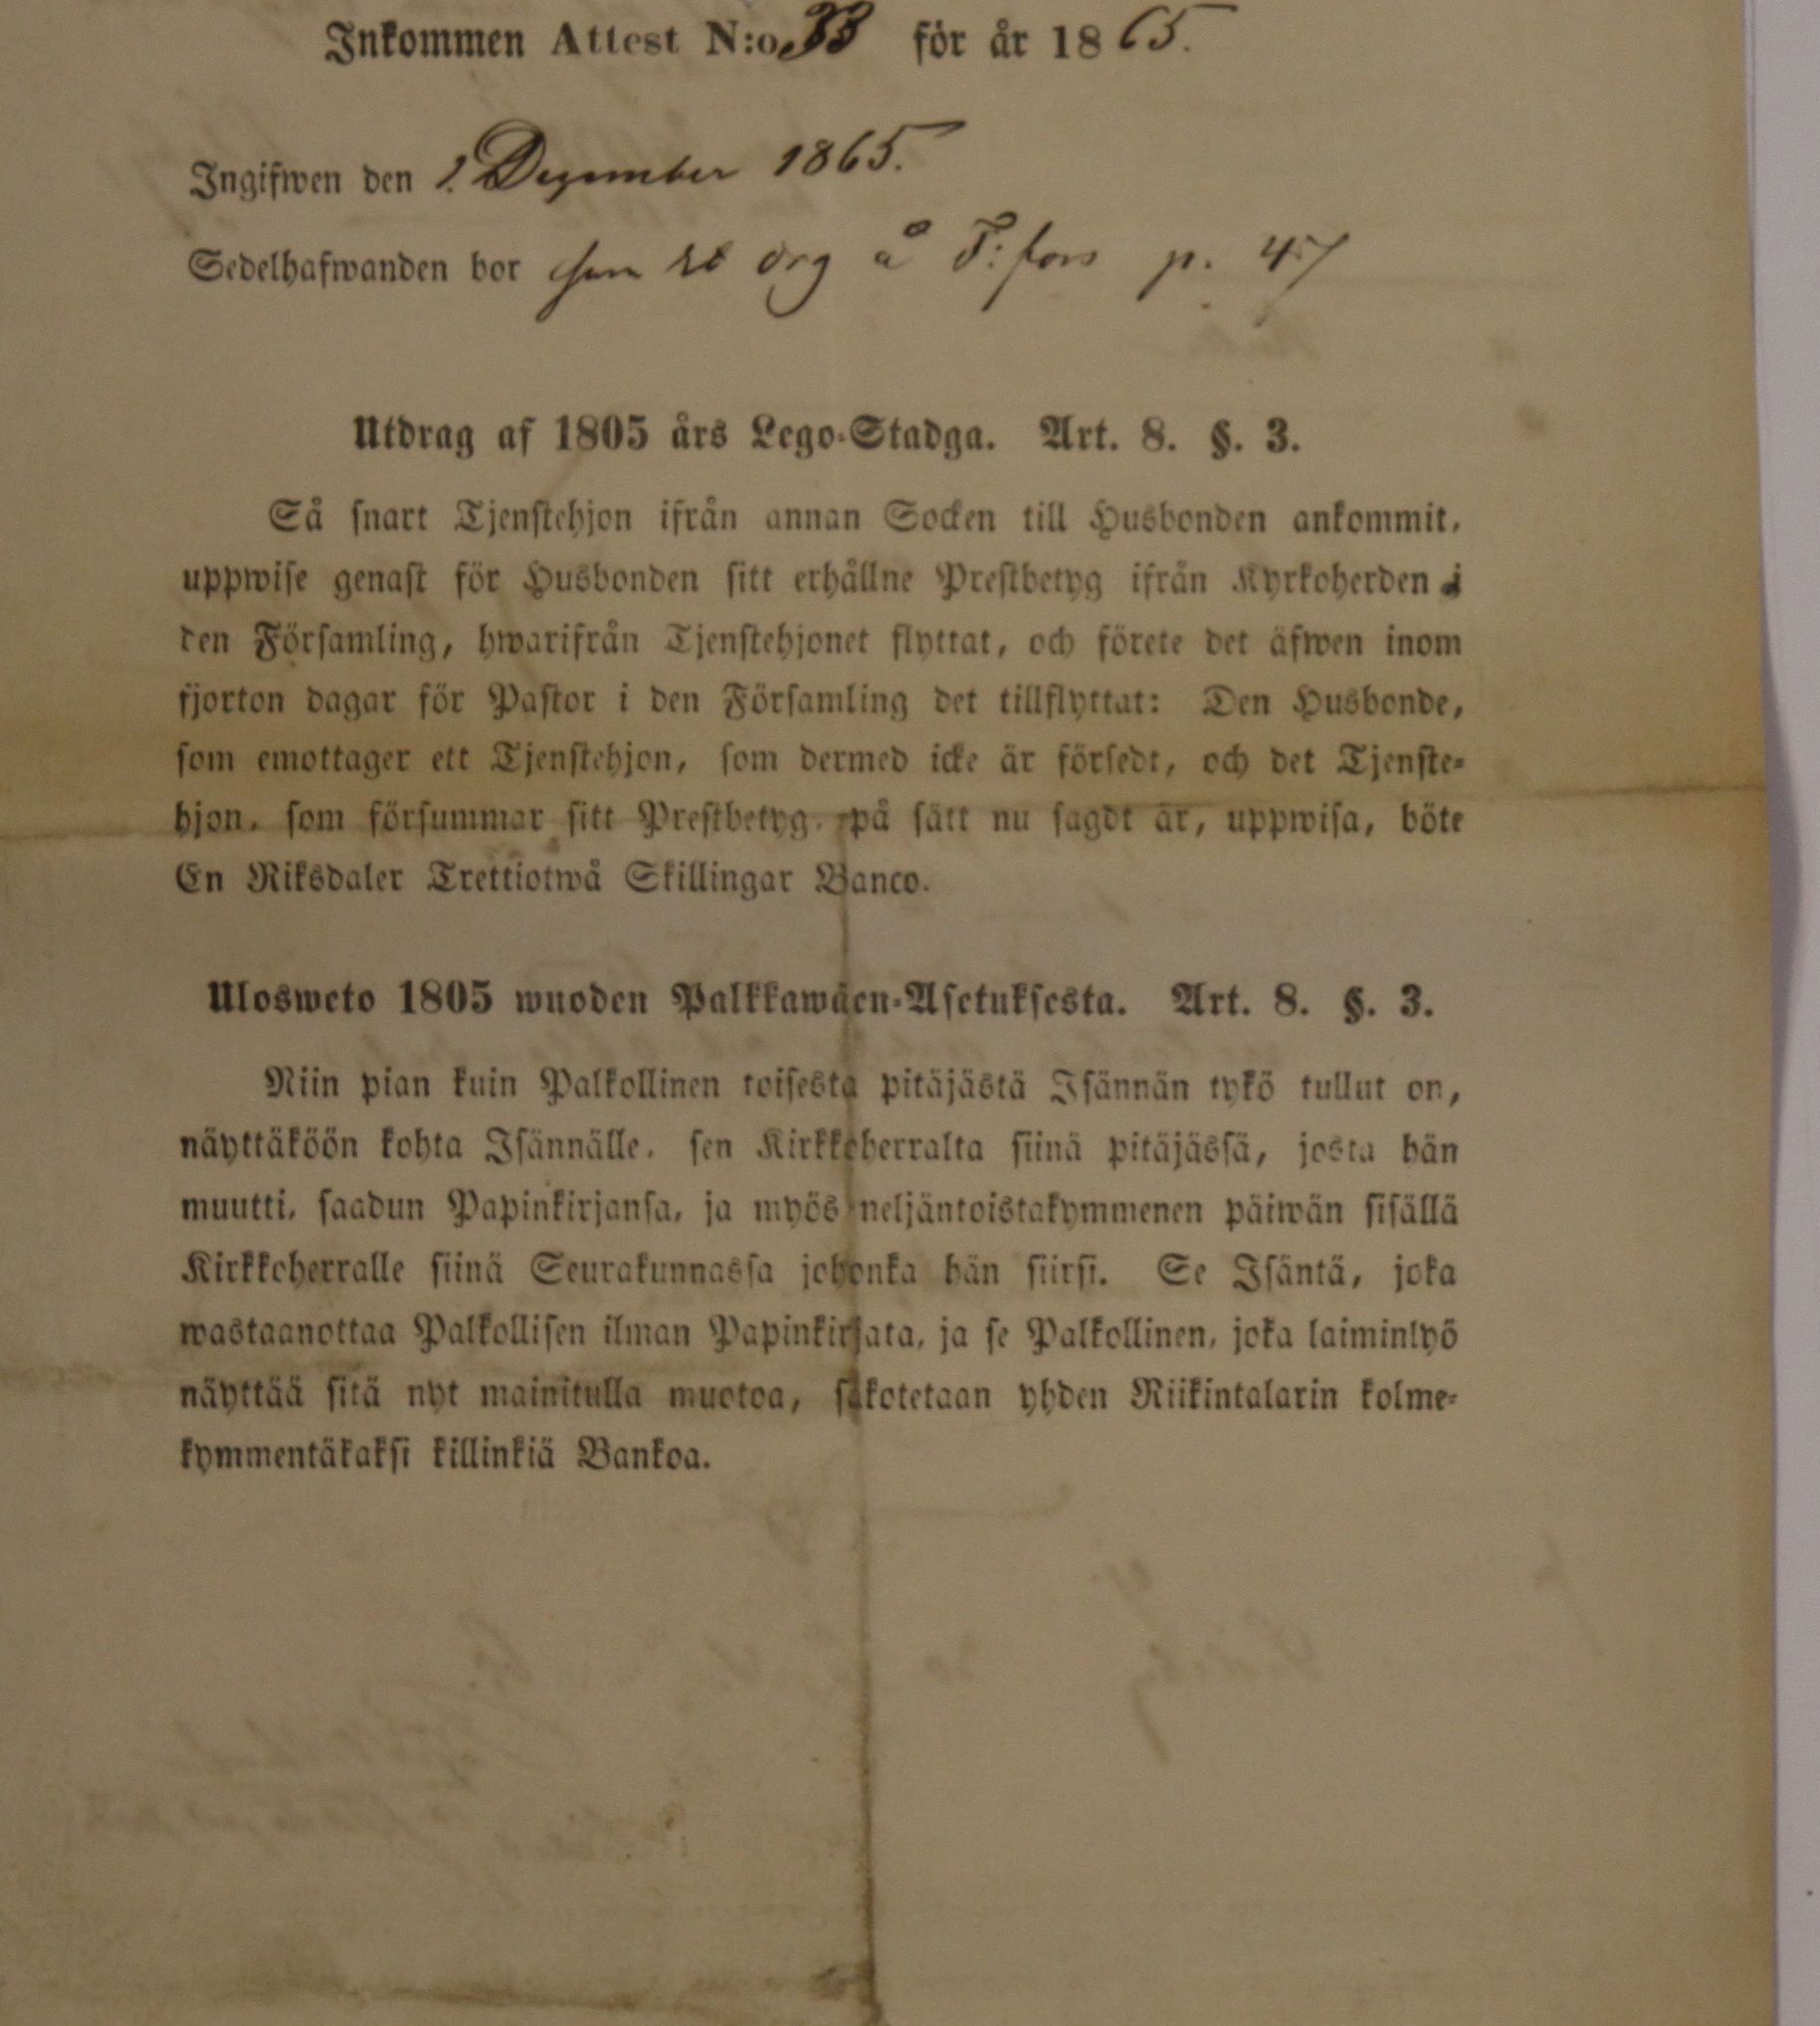 Inkommen Attest N:o 33 för år 1865.
Ingifwen den 2. Dezember 1865.
Sedelhafwanden bor å F:fors p. 47
Utdrag af 1805 års Lego-Stadga. Art. 8. §. 3.
Så snart Tjenstehjon ifrån annan Socken till Husbonden ankommit,
uppwise genast för Husbonden sitt erhållne Prestbetyg ifrån Kyrkoherden i
den Församling, hwarifrån Tjenstehjonet flyttat, och förete det äfwen inom
fjorton dagar för Pastor i den Församling det tillflyttat: Den Husbonde,
som emottager ett Tjenstehjon, som dermed icke är försedt, och det Tjenste-
hjon, som försummar sitt Prestbetyg, på sätt nu sagdt är, uppwisa, böte
En Riksdaler Trettiotwå Skillingar Banco.
Ulosweto 1805 wuoden Palkkawäen-Asetuksesta. Art. 8. §. 3.
Niin pian kuin Palkollinen toisesta pitäjästä Isännän tykö tullut on,
näyttäköön kohta Isännälle, sen Kirkkoherralta siinä pitäjässä, josta hän
muutti, saadun Papinkirjansa, ja myös neljäntoistakymmenen päiwän sisällä
Kirkkoherralle siinä Seurakunnassa johonka hän siirsi. Se Isäntä, joka
wastaanottaa Palkollisen ilman Papinkirjata, ja se Palkollinen, joka laiminlyö
näyttää sitä nyt mainitulla muotoa, sakotetaan yhden Riikintalarin kolme-
kymmentäkaksi killinkiä Bankoa.